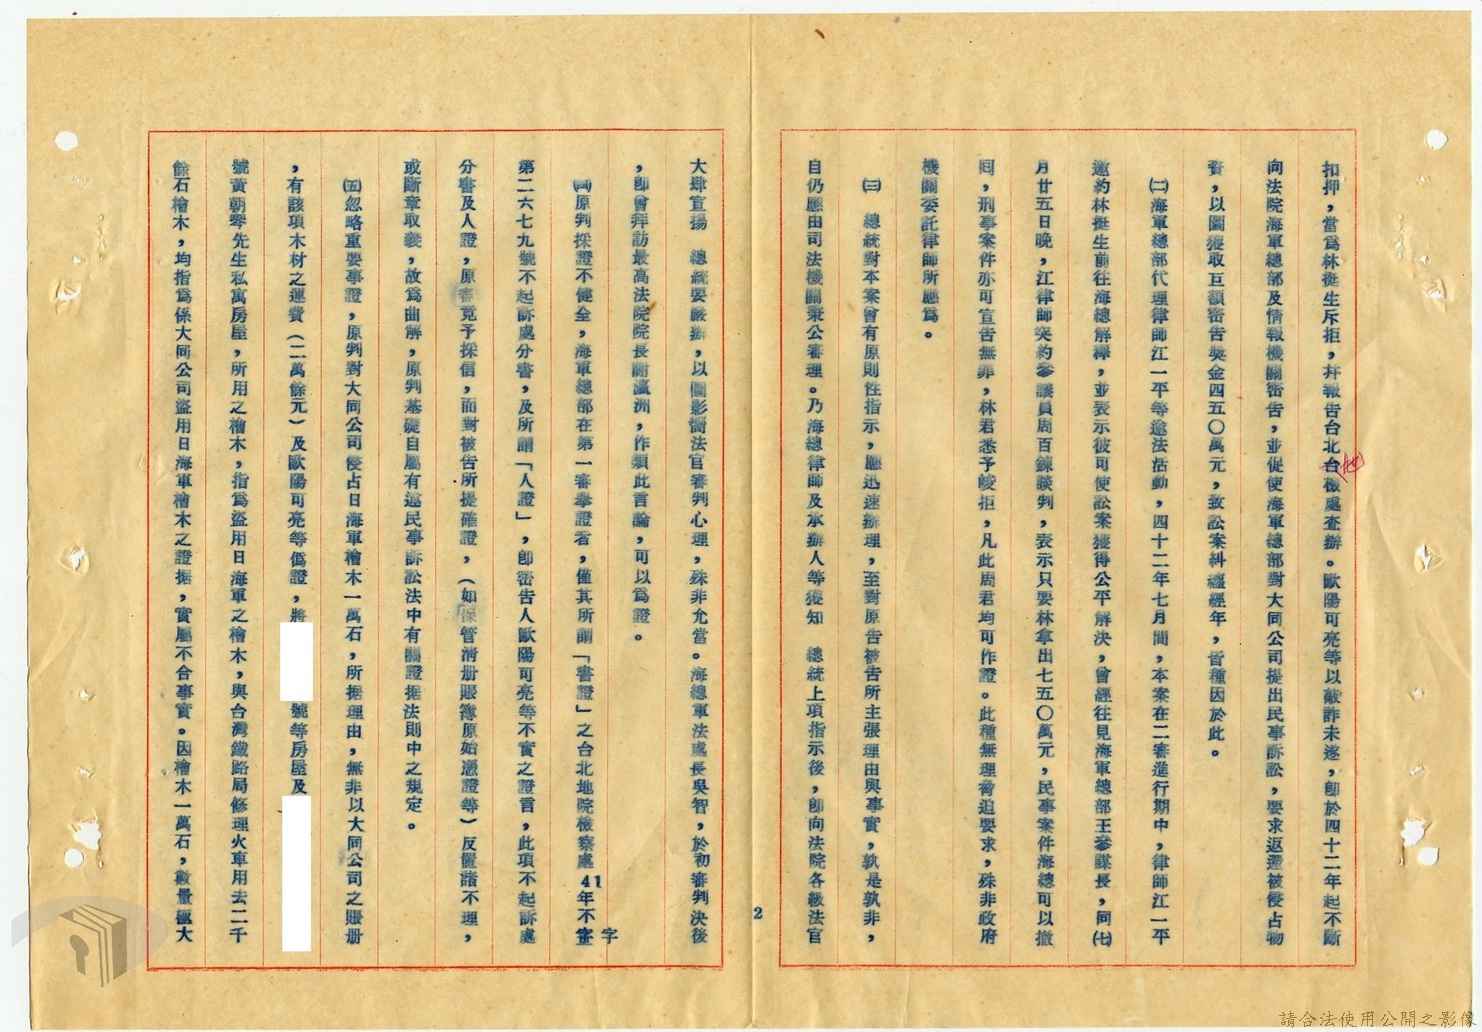 扣押，當爲林挺生斥拒，幷報告台北台檢處查辦。歐陽可亮等以敲詐未遂，卽於四十二年起不斷
地
向法院海軍總部及情報機關密告，並促使海軍總部對大同公司提出民事訴訟，要求返還被侵占物
資，以圖獲取巨額密告奬金四五〇萬元，致訟案糾纏經年，皆種因於此。
㈡海軍總部代理律師江一平等違法活動，四十二年七月間，本案在二審進行期中，律師江一平
邀約林挺生前往海總解釋，並表示彼可使訟案獲得公平解決，曾經往見海軍總部王參謀長，同㈦
月廿五日晚，江律師突約參議員周百鍊談判，表示只要林拿出七五〇萬元，民事案件海總可以撤
囘，刑事案件亦可宣告無罪，林君悉予峻拒，凡此周君均可作證。此種無理脅迫要求，殊非政府
機關委託律師所應爲。
㈢　總統對本案曾有原則性指示，應迅速辦理，至對原告被告所主張理由與事實，孰是孰非，
自仍應由司法機關秉公審理。乃海總律師及承辦人等獲知　總統上項指示後，卽向法院各級法官
2
大肆宣揚　總統要嚴辦，以圖影響法官審判心理，殊非允當。海總軍法處長吳智，於初審判決後
，卽曾拜訪最高法院院長謝瀛洲，作類此言論，可以爲證。
㈣原判採證不健全，海軍總部在第一審舉證者，僅其所謂「書證」之台北地院檢察處41年不字
第二六七九號不起訴處分書，及所謂「人證」，卽密告人歐陽可亮等不實之證言，此項不起訴處
分書及人證，原審竟予採信，而對被告所提確證，（如保管清册賬簿原始憑證等）反置諸不理，
或斷章取義，故爲曲解，原判基礎自屬有違民事訴訟法中有關證據法則中之規定。
㈤忽略重要事證，原判對大同公司侵占日海軍檜木一萬石，所據理由，無非以大同公司之賬册
，有該項木材之運費（二萬餘元）及歐陽可亮等僞證，將　　號等房屋及
號黃朝琴先生私寓房屋，所用之檜木，指爲盜用日海軍之檜木，與台灣鐵路局修理火車用去二千
餘石檜木，均指爲係大同公司盜用日海軍檜木之證據，實屬不合事實。因檜木一萬石，數量龐大
請合法使用公開之影像